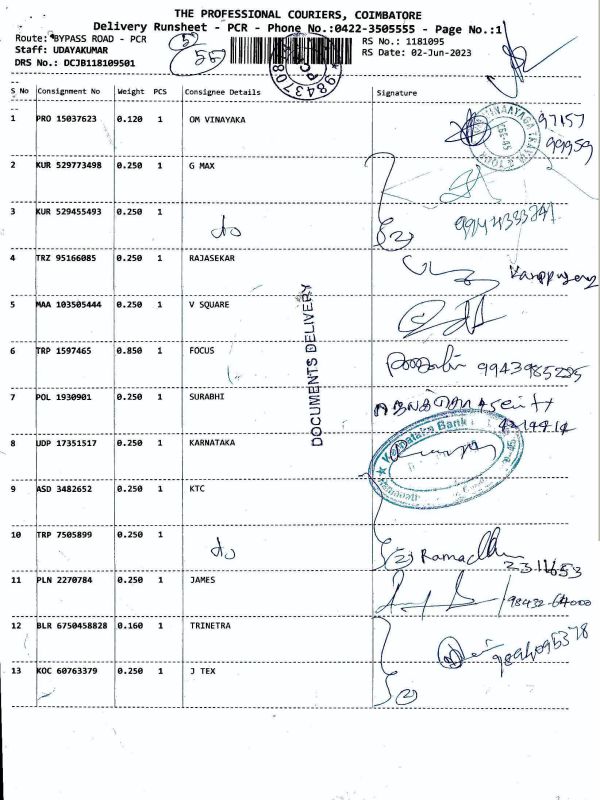 THE PROFESSIONAL COURIERS, COIMBATORE
Delivery Runsheet - PCR - Phone No.:0422-3505555 - Page No.:1
Route: BYPASS ROAD - PCR
RS No.: 1181095
Staff: UDAYAKUMAR
RS Date: 02-Jun-2023
DRS No.: DCJB118109501
S No Consignment No Weight PCS Consignee Details Signature
1 PRO 15037623 0.120 1 OM VINAYAKA
97157
99959
2 KUR 529773498 0.250 1 G MAX
3 KUR 529455493 0.250 1 do
(2)
4 TRZ 95166085 0.250 1 RAJASEKAR
5 MAA 103505444 0.250 1 V SQUARE
6 TRP 1597465 0.850 1 FOCUS
9943985285
7 POL 1930901 0.250 1 SURABHI
8 UDP 17351517 0.250 1 KARNATAKA
Karnataka Bank
9 ASD 3482652 0.250 1 KTC
10 TRP 7505899 0.250 1 do
(2)
11 PLN 2270784 0.250 1 JAMES
12 BLR 6750458828 0.160 1 TRINETRA
13 KOC 60763379 0.250 1 J TEX
(2)
DOCUMENTS DELIVERY